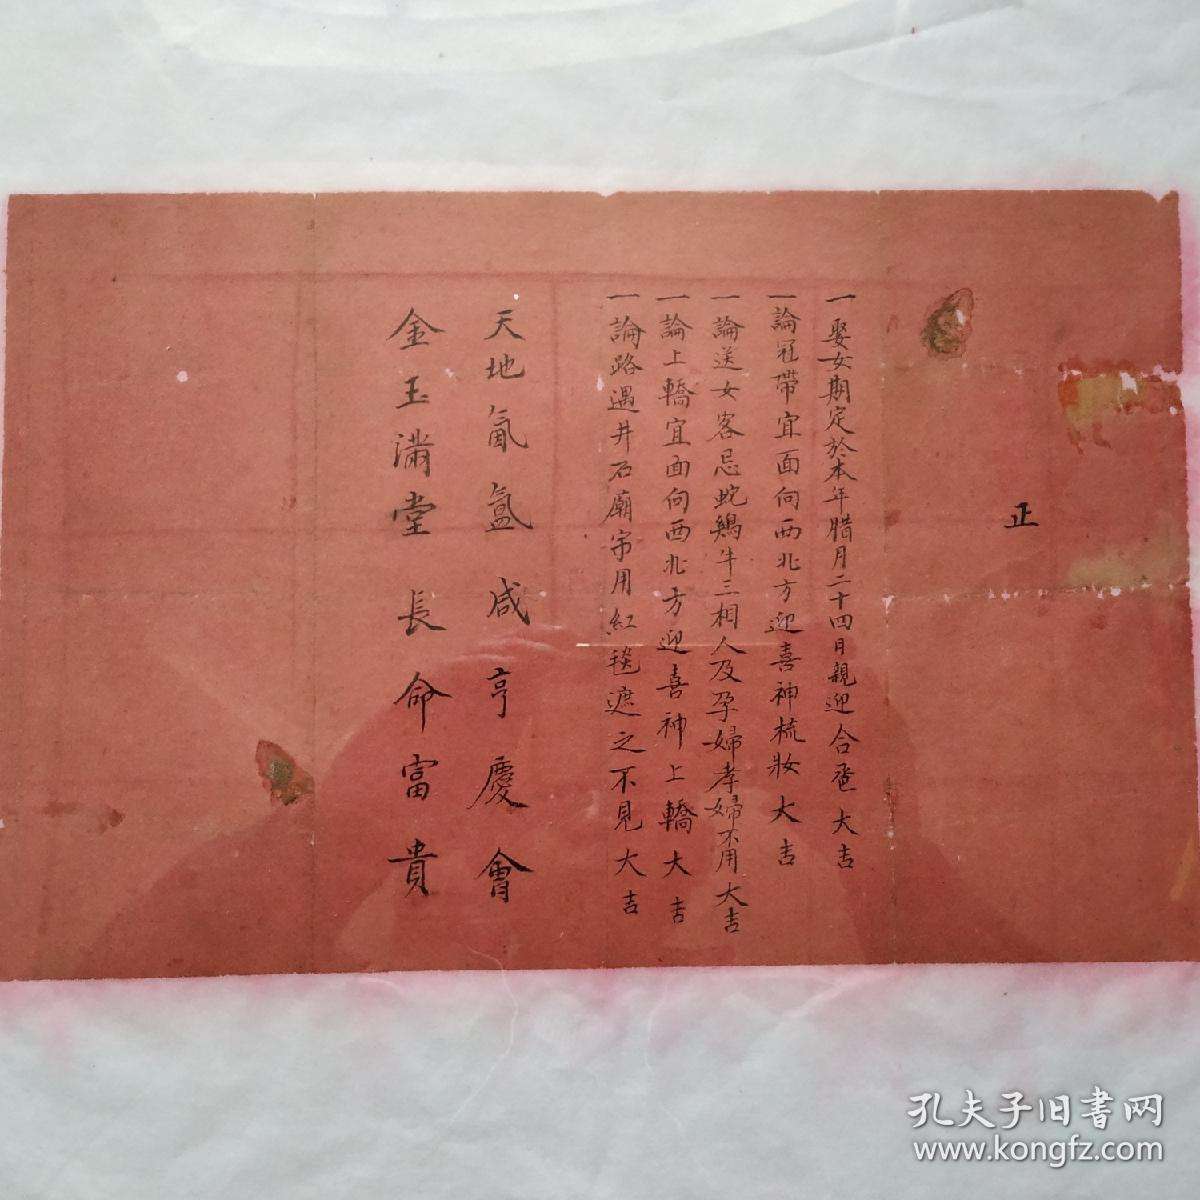 正
一娶女期定於本年腊月二十四日親迎合卺大吉
一論冠帶宜面向西北方迎喜神梳妝大吉
一論送女客忌蛇鷄牛三相人及孕婦孝婦不用大吉
一論上轎宜面向西北方迎喜神上轎大吉
一論路遇井石廟宇用紅毯遮之不見大吉
天地氤氳咸亨慶會
金玉滿堂長命富貴
孔夫子旧书网
www.kongfz.com